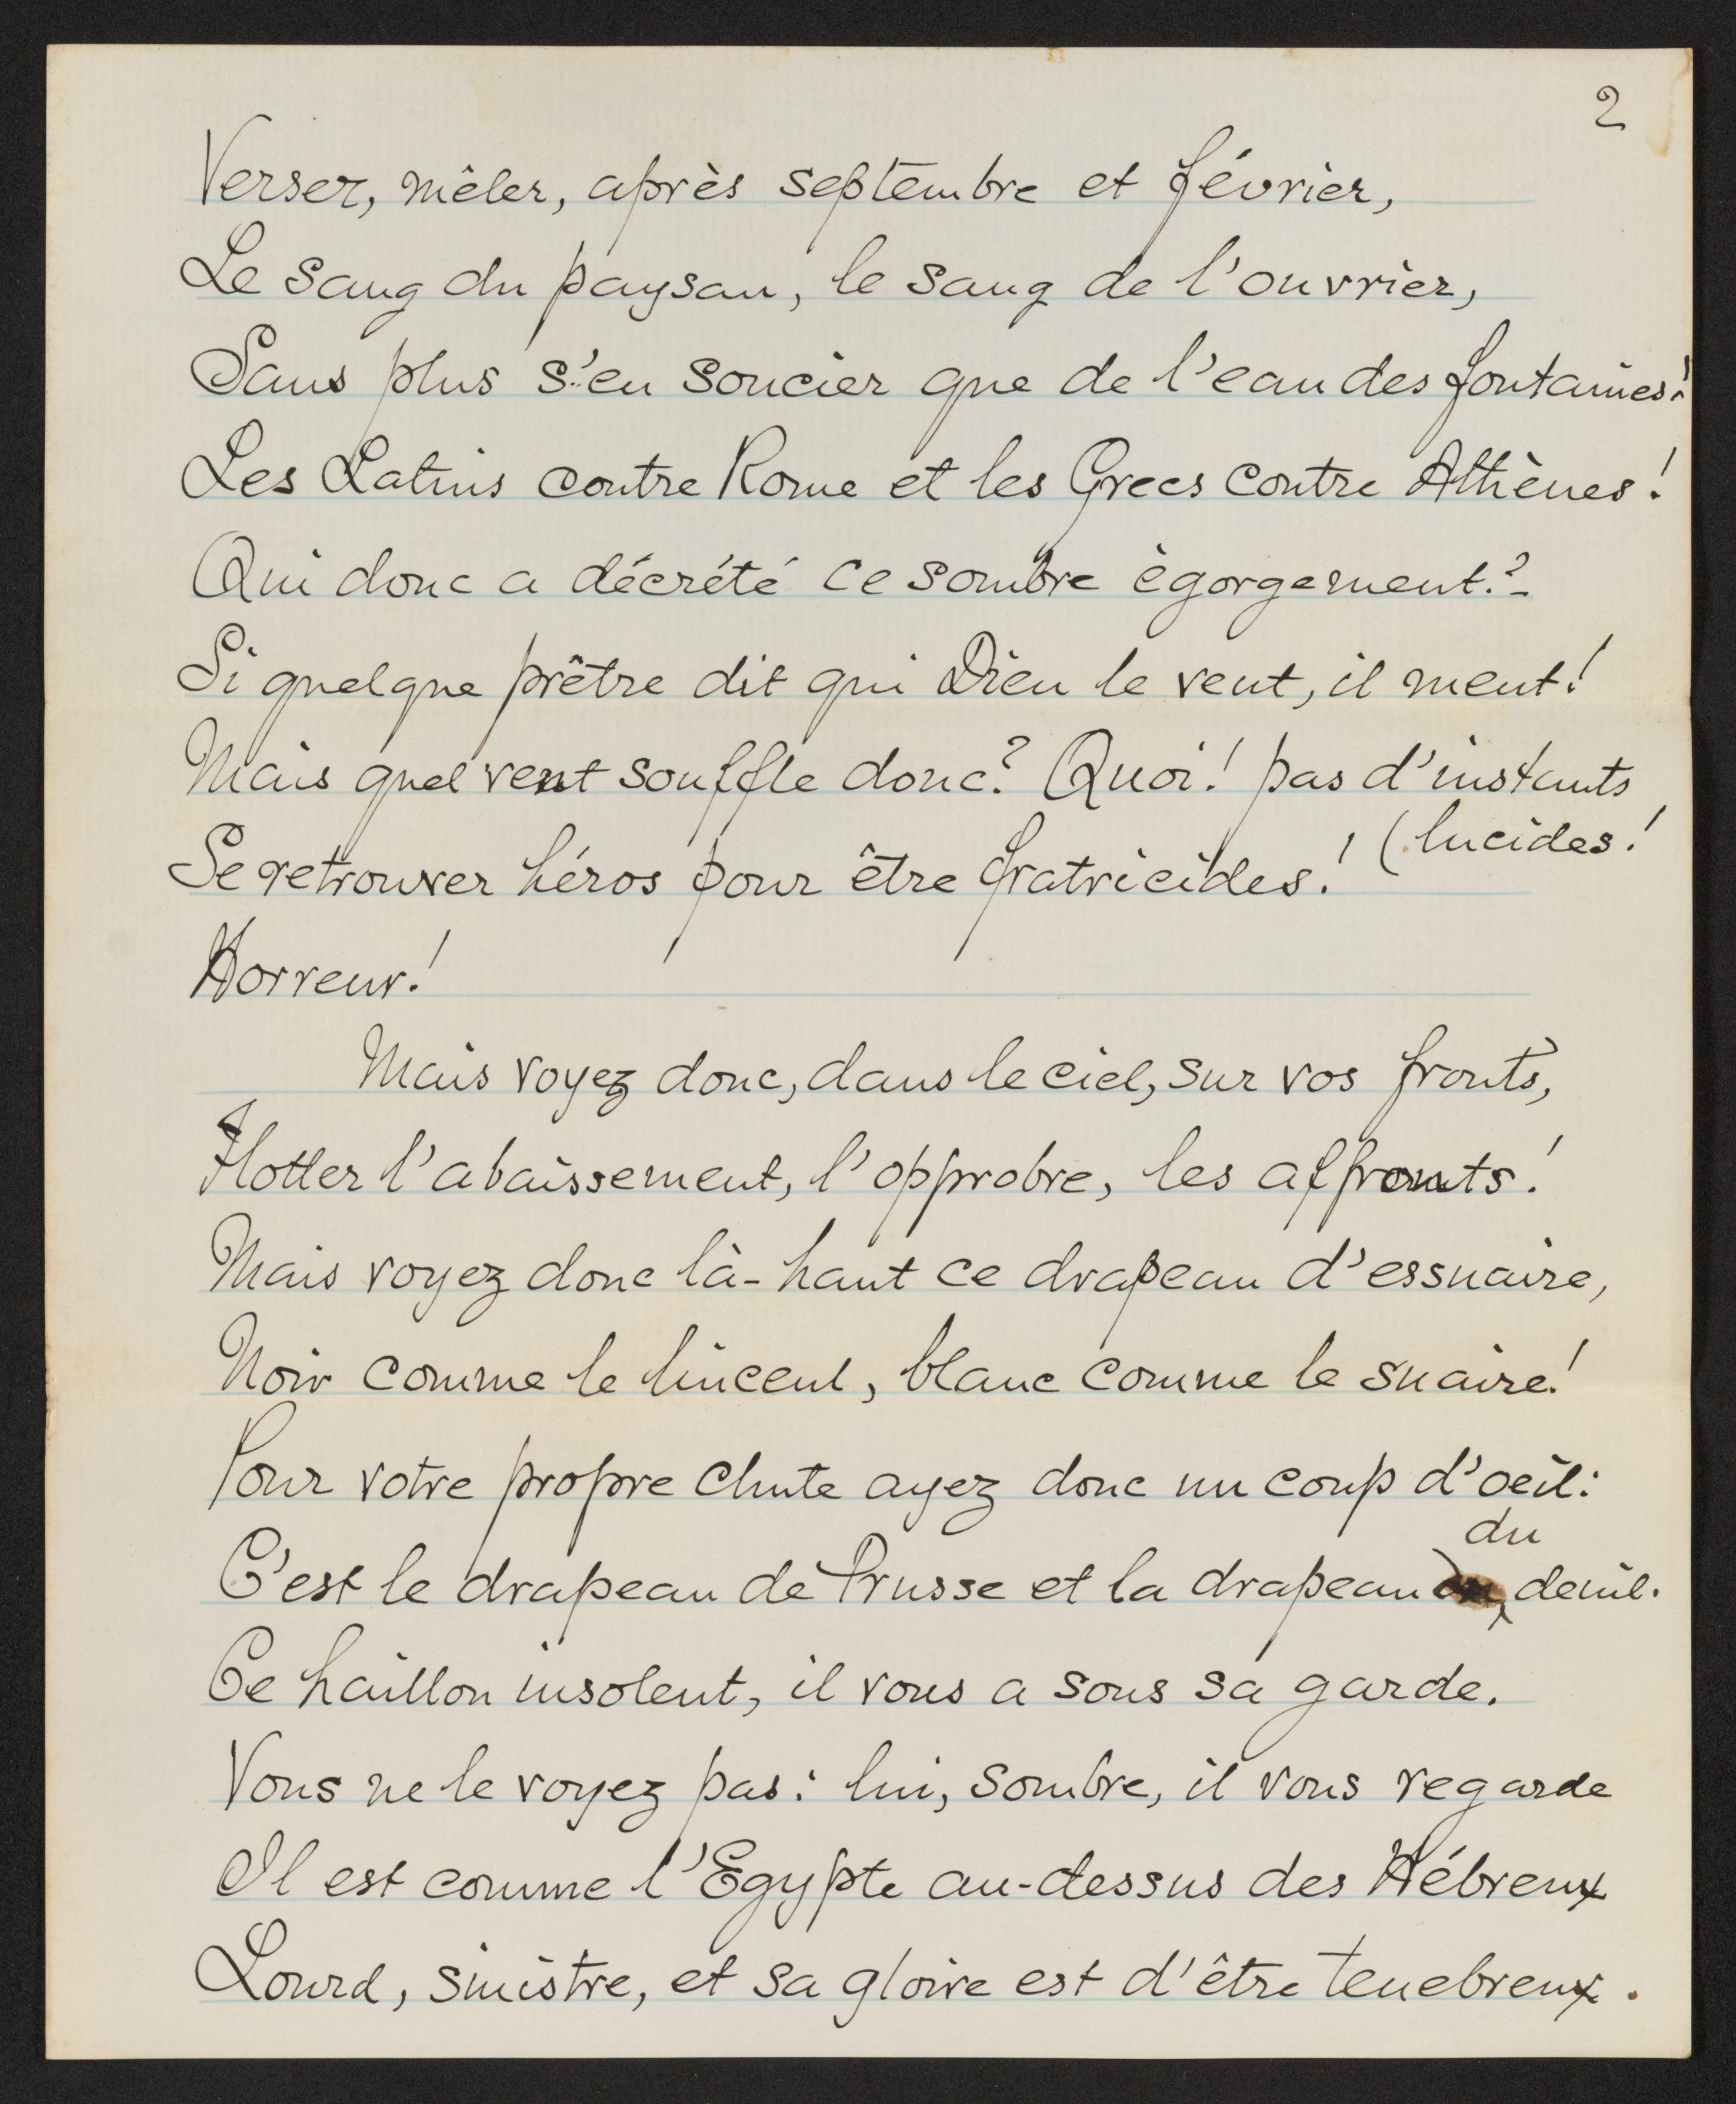 2
Verser, mêler, après septembre et février,
Le sang du paysan, le sang de l'ouvrier,
Sans plus s'en soucier que de l'eau des fontaines!
Les Latins contre Rome et les Grecs contre Athènes!
Qui donc a décrété ce sombre égorgement?
Si quelque prêtre dit qui Dieu le veut, il ment!
Mais quel vent souffle donc? Quoi! pas d'instants
(lucides!
Se retrouver héros pour être fratricides!
Horreur!
Mais voyez donc, dans le ciel, sur vos fronts,
Flotter l'abaissement, l'opprobre, les affronts!
Mais voyez donc là-haut ce drapeau d'essuaire,
Noir comme le linceul, blanc comme le suaire!
Pour votre propre chute ayez donc un coup d'oeil:
C'est le drapeau de Prusse et la drapeau du deuil.
Ce haillon insolent, il vous a sous sa garde.
Vous ne le voyez pas: lui, sombre, il vous regarde
Il est comme l'Egypte au-dessus des Hébreux
Lourd, sinistre, et sa gloire est d'être tenebreux.